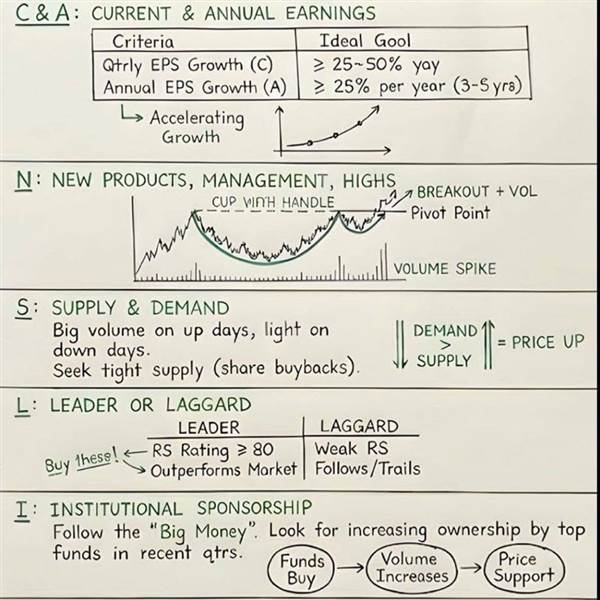 C & A: CURRENT & ANNUAL EARNINGS
Criteria Ideal Gool
Qtrly EPS Growth (C) ≥ 25-50% yay
Annual EPS Growth (A) ≥ 25% per year (3-5 yrs)
Accelerating
Growth
N: NEW PRODUCTS, MANAGEMENT, HIGHS
CUP WITH HANDLE
BREAKOUT + VOL
Pivot Point
VOLUME SPIKE
S: SUPPLY & DEMAND
Big volume on up days, light on
down days.
Seek tight supply (share buybacks).
DEMAND
>
SUPPLY
= PRICE UP
L: LEADER OR LAGGARD
LEADER LAGGARD
Buy these!
RS Rating ≥ 80 Weak RS
Outperforms Market Follows/Trails
I: INSTITUTIONAL SPONSORSHIP
Follow the "Big Money". Look for increasing ownership by top
funds in recent qtrs.
Funds
Buy
Volume
Increases
Price
Support